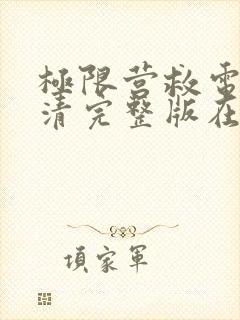 極限营救電
清完整版在
項家軍